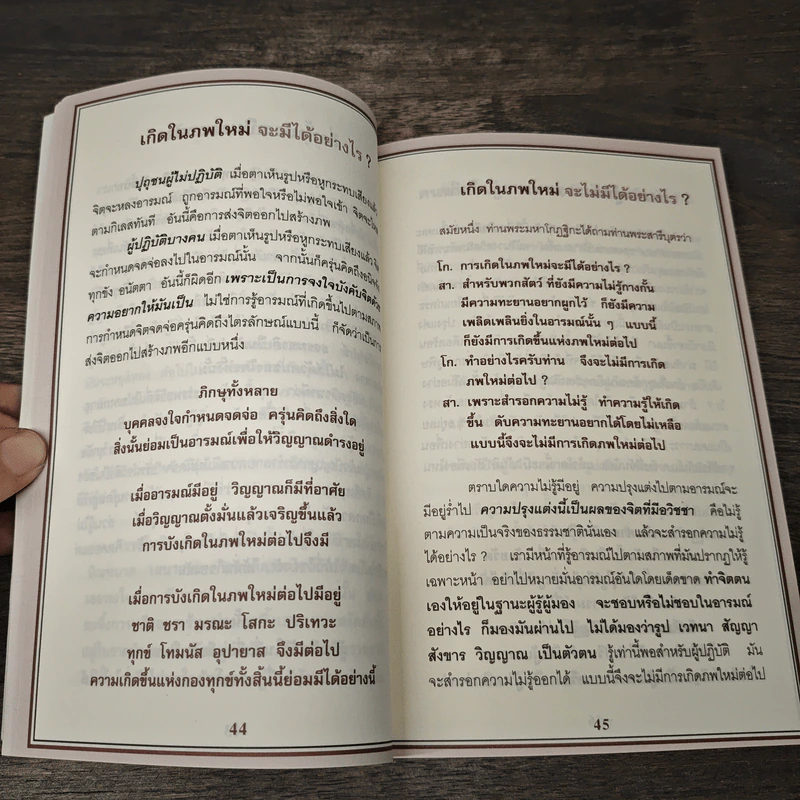 เกิดในภพใหม่ จะมีได้อย่างไร ?
ปุถุชนผู้ไม่ปฏิบัติ เมื่อตาเห็นรูปหรือหูกระทบเสียงแล้ว
จิตจะหลงอารมณ์ ถูกอารมณ์ที่พอใจหรือไม่พอใจเข้า
ตามกิเลสทันที อันนี้คือการส่งจิตออกไปสร้างภพ
ผู้ปฏิบัติบางคน เมื่อตาเห็นรูปหรือหูกระทบเสียงแล้ว
จะกำหนดจดจ่อลงไปในอารมณ์นั้น จากนั้นก็ครุ่นคิดถึง
ทุกขัง อนัตตา อันนี้ก็ผิดอีก เพราะเป็นการจงใจบังคับจิตด้วย
ความอยากให้มันเป็น ไม่ใช่การรู้อารมณ์ที่เกิดขึ้นไปตามสภาพ
การกำหนดจิตจดจ่อครุ่นคิดถึงไตรลักษณ์แบบนี้ ก็จัดว่าเป็นการ
ส่งจิตออกไปสร้างภพอีกแบบหนึ่ง
ภิกษุทั้งหลาย
บุคคลจงใจกำหนดจดจ่อ ครุ่นคิดถึงสิ่งใด
สิ่งนั้นย่อมเป็นอารมณ์เพื่อให้วิญญาณดำรงอยู่
เมื่ออารมณ์มีอยู่ วิญญาณก็มีที่อาศัย
เมื่อวิญญาณตั้งมั่นแล้วเจริญขึ้นแล้ว
การบังเกิดในภพใหม่ต่อไปจึงมี
เมื่อการบังเกิดในภพใหม่ต่อไปมีอยู่
ชาติ ชรา มรณะ โสกะ ปริเทวะ
ทุกข์ โทมนัส อุปายาส จึงมีต่อไป
ความเกิดขึ้นแห่งกองทุกข์ทั้งสิ้นนี้ย่อมมีได้อย่างนี้
44
เกิดในภพใหม่ จะไม่มีได้อย่างไร ?
สมัยหนึ่ง ท่านพระมหาโกฏฐิกะได้ถามท่านพระสารีบุตรว่า
โก. การเกิดในภพใหม่จะมีได้อย่างไร ?
สา. สำหรับพวกสัตว์ ที่ยังมีความไม่รู้กางกั้น
มีความทะยานอยากผูกไว้ ก็ยังมีความ
เพลิดเพลินยิ่งในอารมณ์นั้น ๆ แบบนี้
ก็ยังมีการเกิดขึ้นแห่งภพใหม่ต่อไป
โก. ทำอย่างไรครับท่าน จึงจะไม่มีการเกิด
ภพใหม่ต่อไป ?
สา. เพราะสำรอกความไม่รู้ ทำความรู้ให้เกิด
ขึ้น ดับความทะยานอยากได้โดยไม่เหลือ
แบบนี้จึงจะไม่มีการเกิดภพใหม่ต่อไป
ตราบใดความไม่รู้มีอยู่ ความปรุงแต่งไปตามอารมณ์จะ
มีอยู่ร่ำไป ความปรุงแต่งนี้เป็นผลของจิตที่มีอวิชชา คือไม่รู้
ตามความเป็นจริงของธรรมชาตินั่นเอง แล้วจะสำรอกความไม่รู้
ได้อย่างไร ? เรามีหน้าที่รู้อารมณ์ไปตามสภาพที่มันปรากฏให้รู้
เฉพาะหน้า อย่าไปหมายมั่นอารมณ์อันใดโดยเด็ดขาด ทำจิตตน
เองให้อยู่ในฐานะผู้รู้ผู้มอง จะชอบหรือไม่ชอบในอารมณ์
อย่างไร ก็มองมันผ่านไป ไม่ได้มองว่ารูป เวทนา สัญญา
สังขาร วิญญาณ เป็นตัวตน รู้เท่านี้พอสำหรับผู้ปฏิบัติ มัน
จะสำรอกความไม่รู้ออกได้ แบบนี้จึงจะไม่มีการเกิดภพใหม่ต่อไป
45